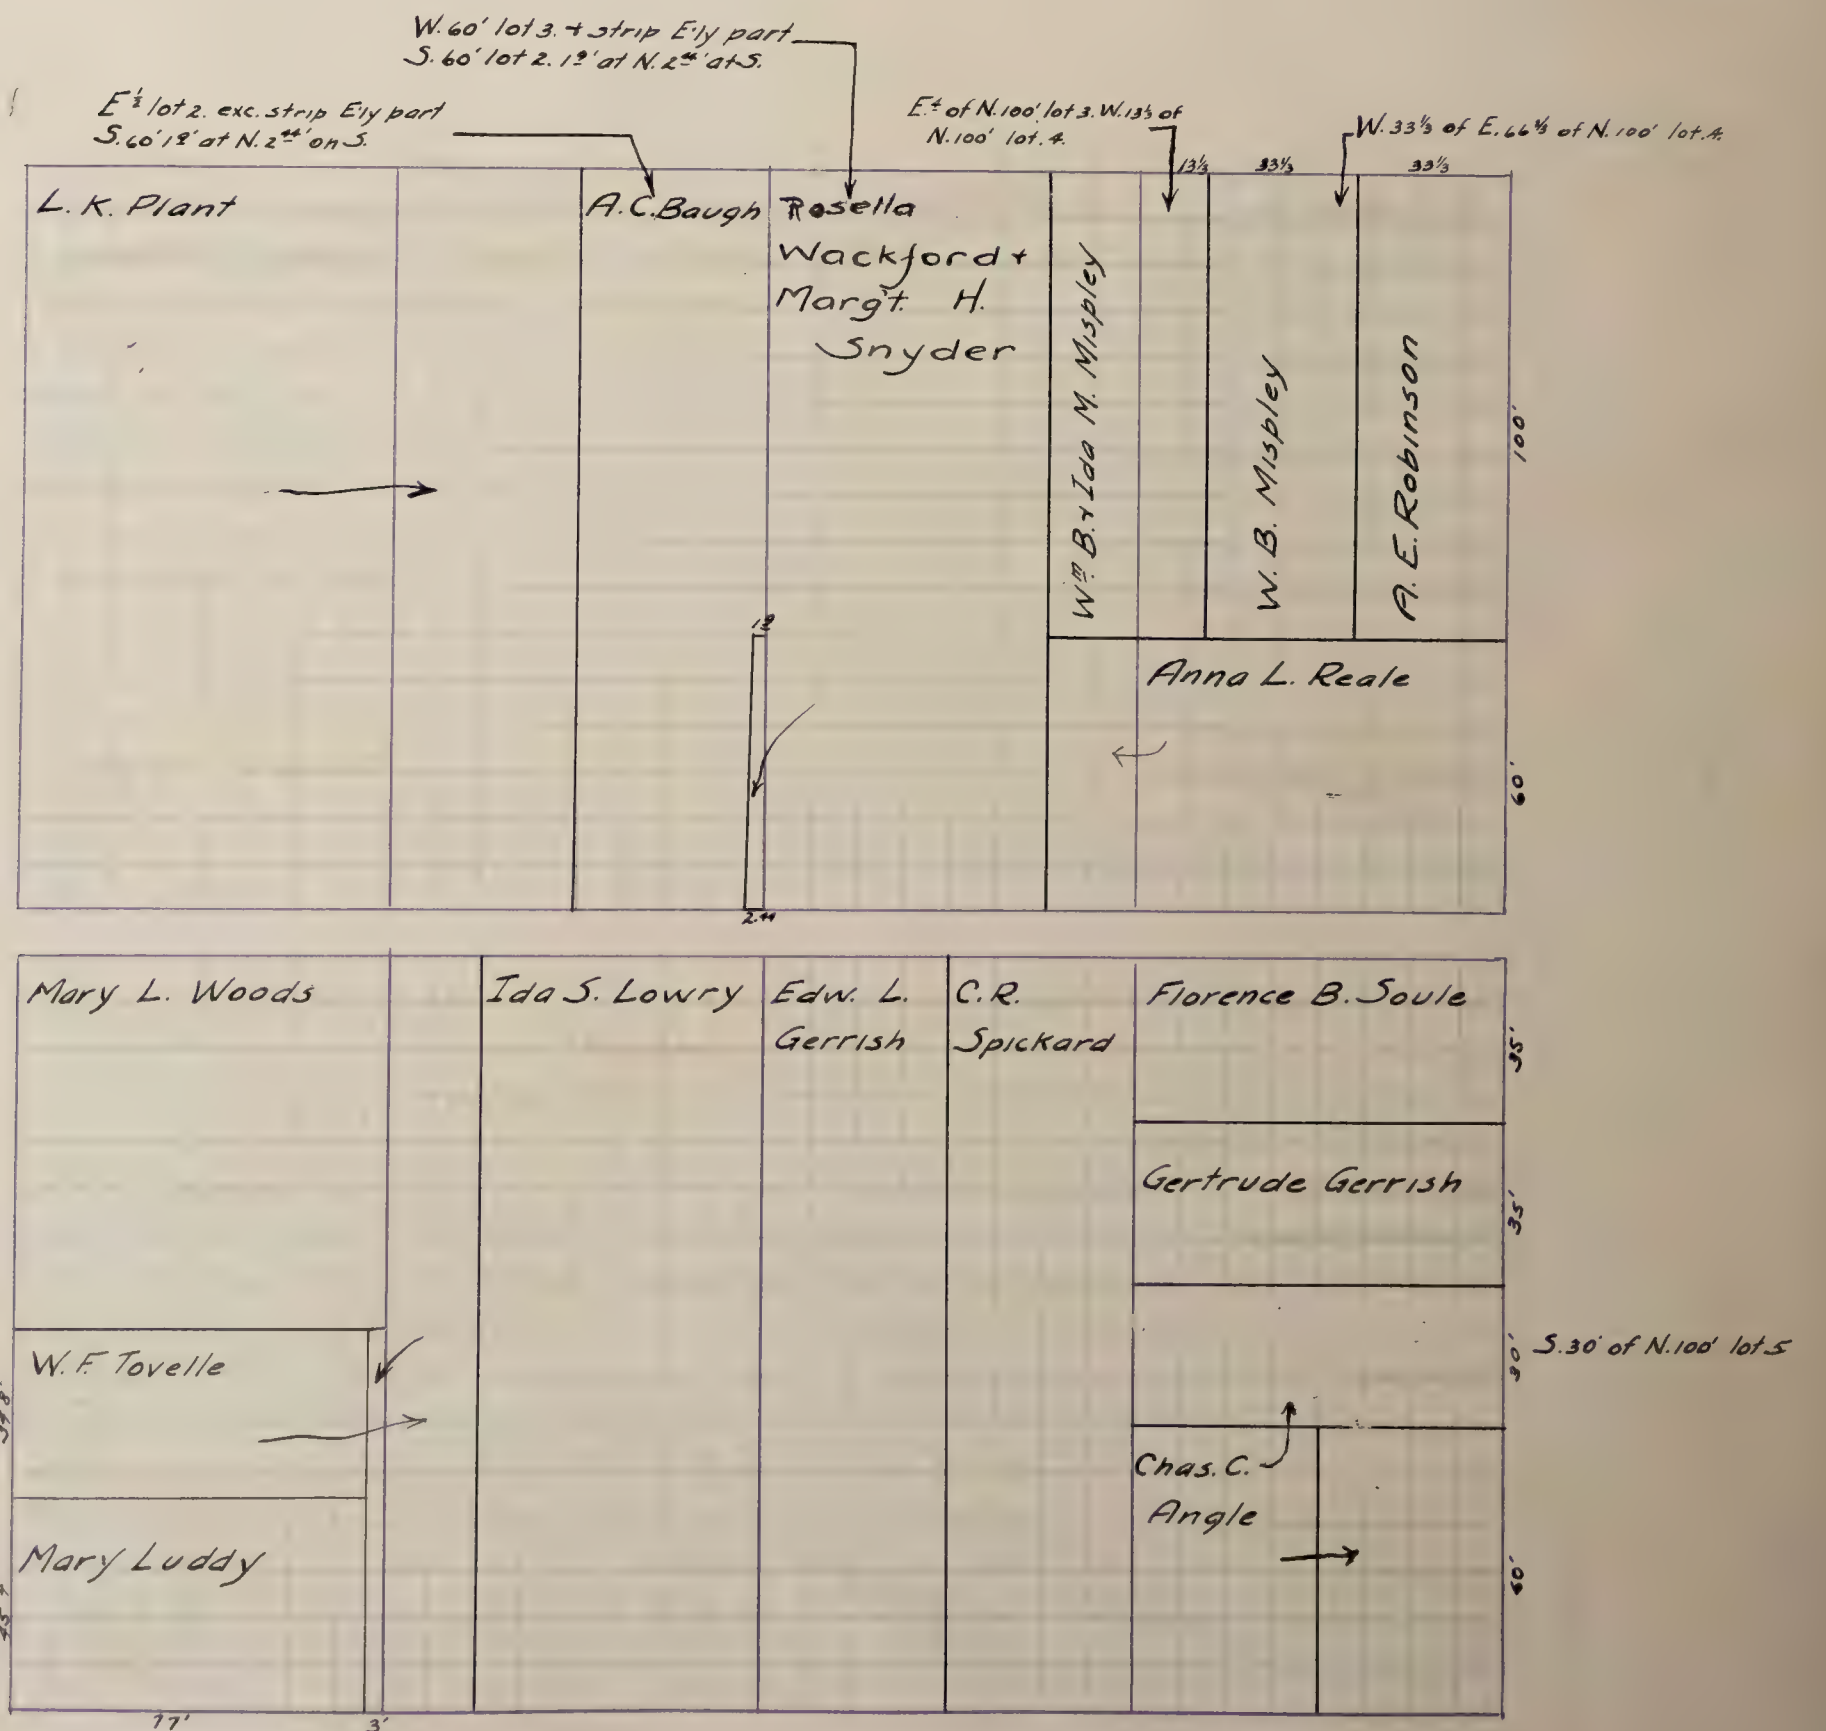 W. 60' lot 3. + strip E'ly part
S. 60' lot 2. 1.9' at N. 2.44' at S.
E ½ lot 2. exc. strip E'ly part
S. 60' 1.9' at N. 2.44' on S.
E ¼ of N. 100' lot 3. W. 13⅓ of
N. 100' lot. 4.
W. 33⅓ of E. 66⅔ of N. 100' lot. 4.
13⅓
33⅓
33⅓
L. K. Plant
A. C. Baugh
Rosella
Wackford +
Marg't. H.
Snyder
Wm B. + Ida M. Mispley
W. B. Mispley
A. E. Robinson
100'
1.9
Anna L. Reale
60'
2.44
Mary L. Woods
Ida S. Lowry
Edw. L.
Gerrish
C. R.
Spickard
Florence B. Soule
35'
Gertrude Gerrish
35'
W. F. Tovelle
30'
S. 30' of N. 100' lot 5
Chas. C.
Angle
Mary Luddy
60'
77'
3'